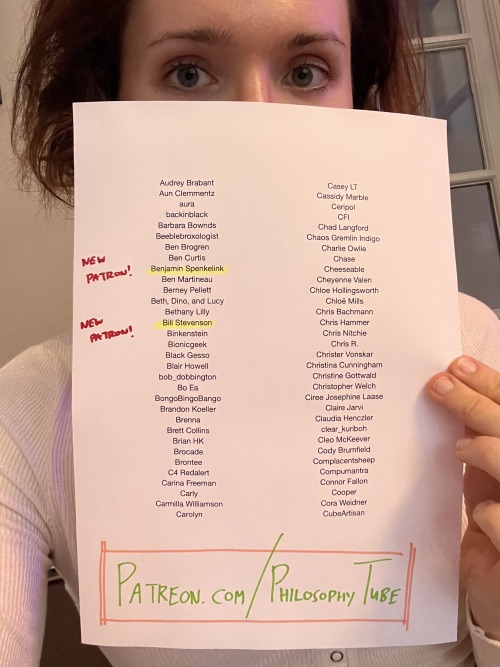 Audrey Brabant
Aun Clemmentz
aura
backinblack
Barbara Bownds
Beeblebroxologist
Ben Brogren
Ben Curtis
NEW
PATRON!
Benjamin Spenkelink
Ben Martineau
Berney Pellett
Beth, Dino, and Lucy
Bethany Lilly
NEW
PATRON!
Bill Stevenson
Binkenstein
Bionicgeek
Black Gesso
Blair Howell
bob_dobbington
Bo Ea
BongoBingoBango
Brandon Koeller
Brenna
Brett Collins
Brian HK
Brocade
Brontee
C4 Redalert
Carina Freeman
Carly
Carmilla Williamson
Carolyn
Casey LT
Cassidy Marble
Ceripol
CFI
Chad Langford
Chaos Gremlin Indigo
Charlie Owlie
Chase
Cheeseable
Cheyenne Valen
Chloe Hollingsworth
Chloé Mills
Chris Bachmann
Chris Hammer
Chris Nitchie
Chris R.
Christer Vonskar
Christina Cunningham
Christine Gottwald
Christopher Welch
Ciree Josephine Laase
Claire Jarvi
Claudia Henczler
clear_kuriboh
Cleo McKeever
Cody Brumfield
Complacentsheep
Compumantra
Connor Fallon
Cooper
Cora Weidner
CubeArtisan
PATREON.COM/PHILOSOPHY TUBE